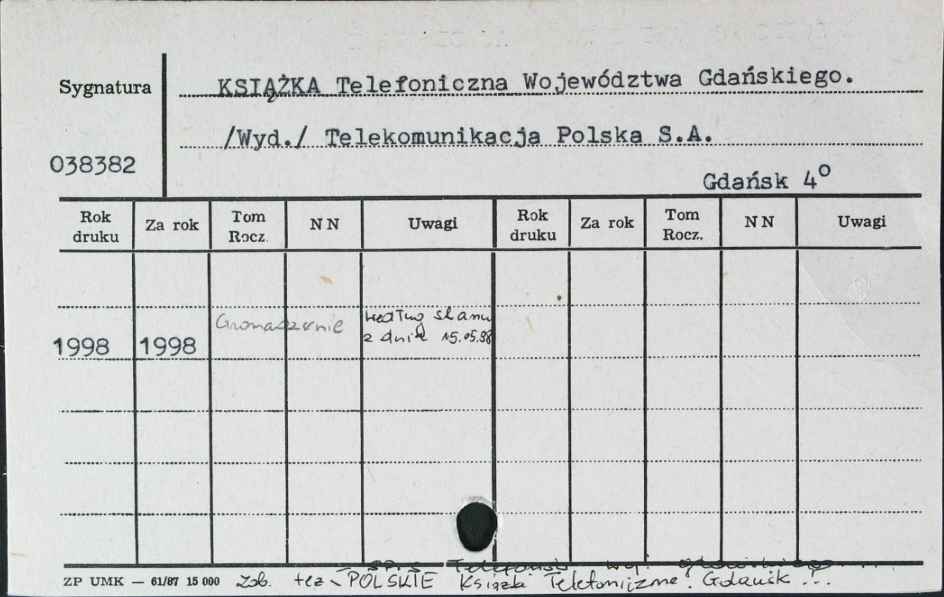 Sygnatura
KSIĄŻKA Telefoniczna Województwa Gdańskiego.
/Wyd./ Telekomunikacja Polska S.A.
038382
Gdańsk 4º
Rok druku Za rok Tom Rocz. NN Uwagi Rok druku Za rok Tom Rocz. NN Uwagi
Gromadzenie
według stanu
1998 1998 z dnia 15.05.98
Telefonów woj.
ZP UMK — 61/87 15 000 Zob. też POLSKIE Książki Telefoniczne. Gdańsk...